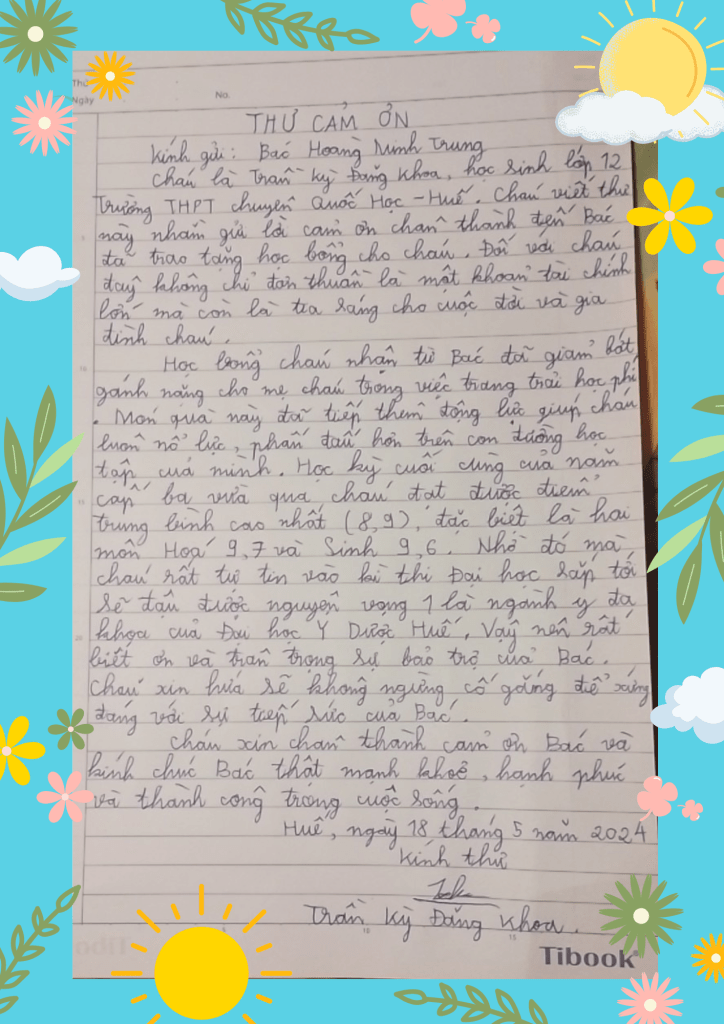 Thứ
Ngày
No.
THƯ CẢM ƠN
Kính gửi: Bác Hoàng Minh Trung
Cháu là Trần Kỳ Đăng Khoa, học sinh lớp 12
Trường THPT chuyên Quốc Học - Huế. Cháu viết thư
này nhằm gửi lời cảm ơn chân thành đến Bác
đã trao tặng học bổng cho cháu. Đối với cháu
đây không chỉ đơn thuần là một khoản tài chính
lớn mà còn là tia sáng cho cuộc đời và gia
đình cháu.
Học bổng cháu nhận từ Bác đã giảm bớt
gánh nặng cho mẹ cháu trong việc trang trải học phí
. Món quà này đã tiếp thêm động lực giúp cháu
luôn nổ lực, phấn đấu hơn trên con đường học
tập của mình. Học kỳ cuối cùng của năm
cấp ba vừa qua cháu đạt được điểm
trung bình cao nhất (8,9), đặc biệt là hai
môn Hoá 9,7 và Sinh 9,6. Nhờ đó mà
cháu rất tự tin vào kì thi Đại học sắp tới
sẽ đậu được nguyện vọng 1 là ngành y đa
khoa của Đại học Y Dược Huế. Vậy nên rất
biết ơn và trân trọng sự bảo trợ của Bác.
Cháu xin hứa sẽ không ngừng cố gắng để xứng
đáng với sự tiếp sức của Bác.
Cháu xin chân thành cảm ơn Bác và
kính chúc Bác thật mạnh khoẻ, hạnh phúc
và thành công trong cuộc sống.
Huế, ngày 18 tháng 5 năm 2024
Kính thư
Trần Kỳ Đăng Khoa.
Tibook